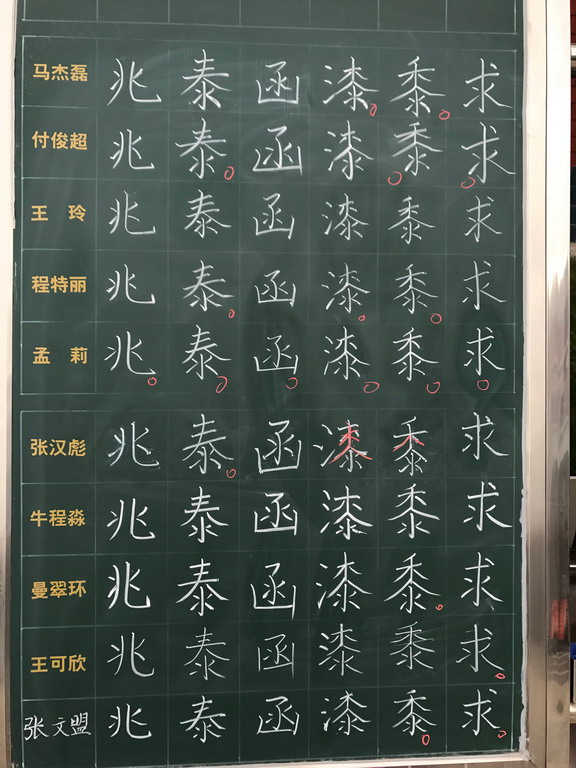 马杰磊 兆 泰 函 漆 黍 求
付俊超 兆 泰 函 漆 黍 求
王 玲 兆 泰 函 漆 黍 求
程特丽 兆 泰 函 漆 黍 求
孟 莉 兆 泰 函 漆 黍 求
张汉彪 兆 泰 函 漆 黍 求
牛程淼 兆 泰 函 漆 黍 求
曼翠环 兆 泰 函 漆 黍 求
王可欣 兆 泰 函 漆 黍 求
张文盟 兆 泰 函 漆 黍 求